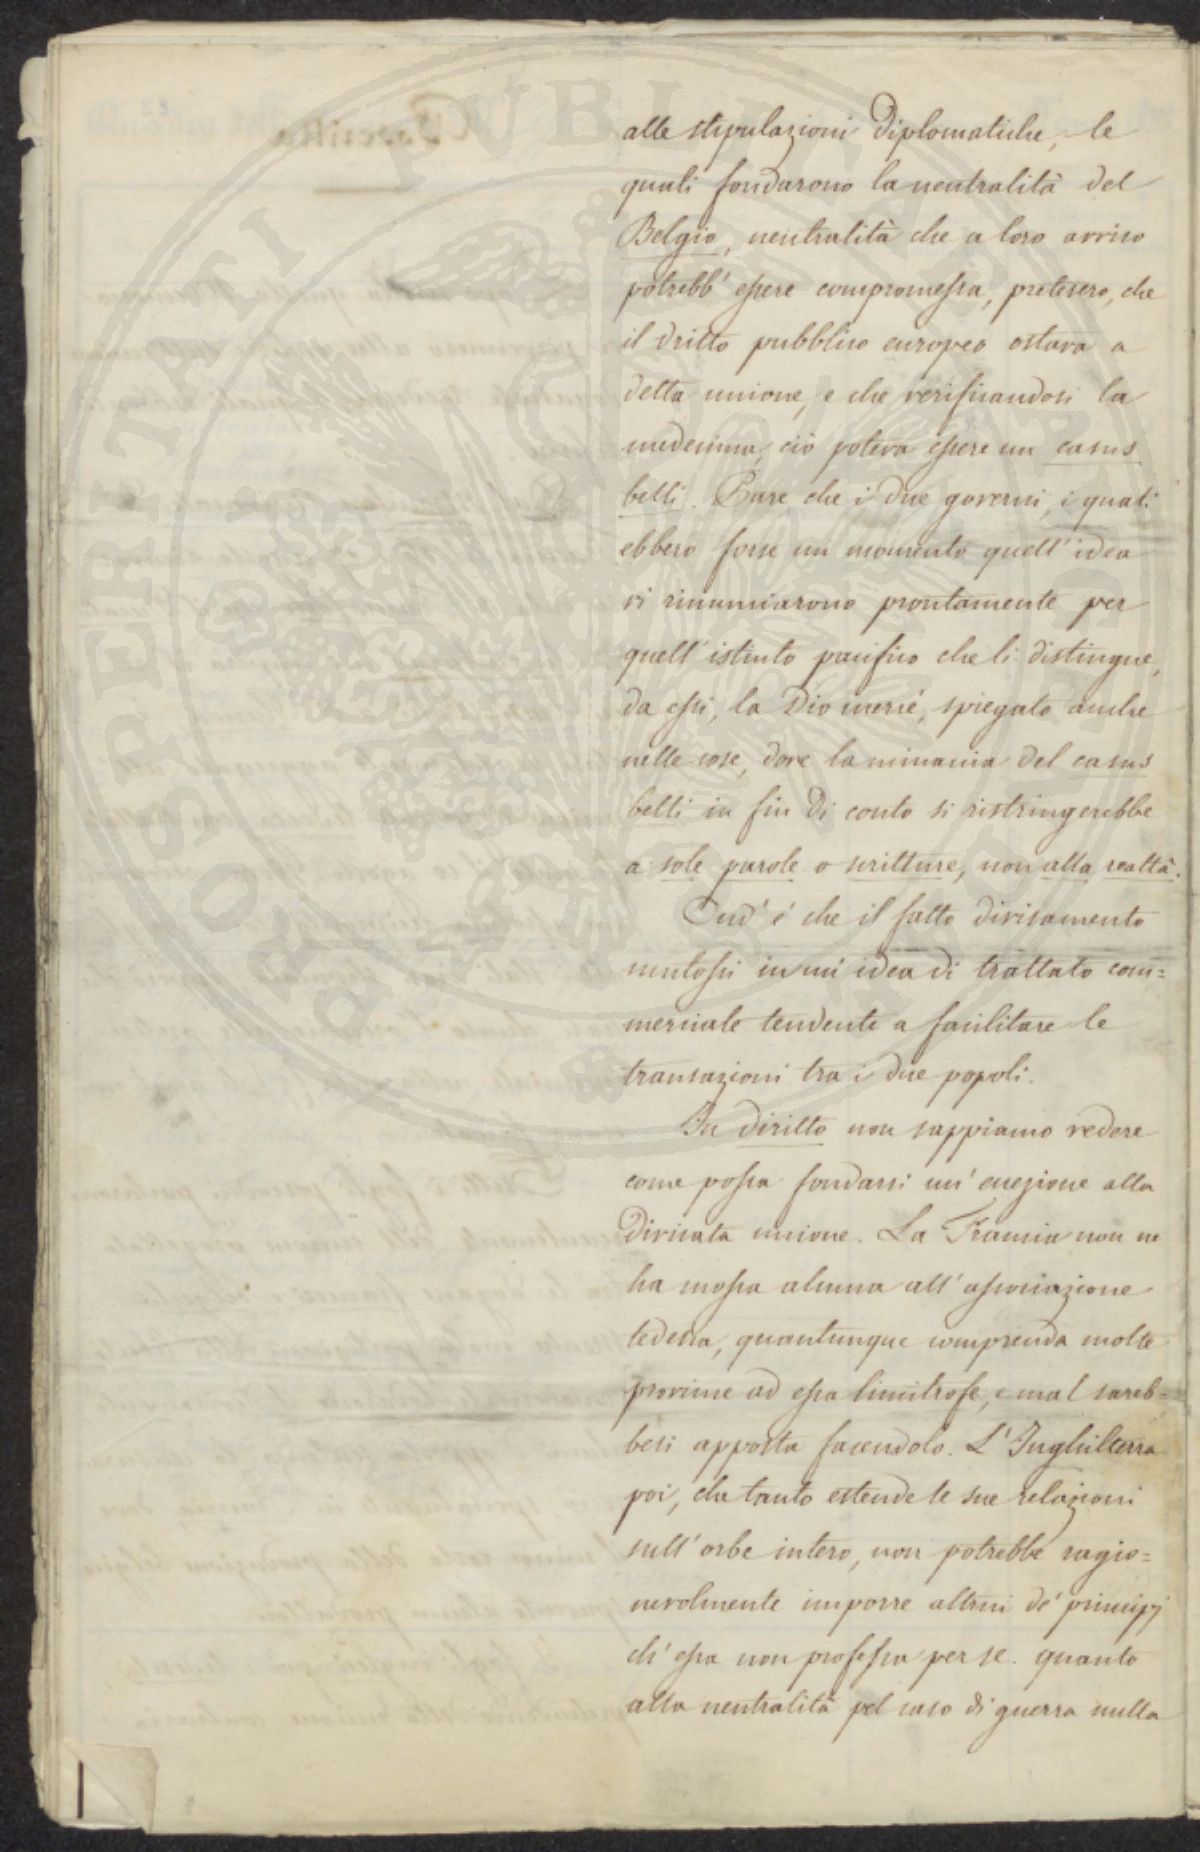 alle stipulazioni diplomatiche, le
quali fondarono la neutralità del
Belgio, neutralità che a loro avviso
potrebb' essere compromessa, pretesero, che
il dritto pubblico europeo ostava a
detta unione, e che verificandosi la
medesima, ciò poteva essere un casus
belli. Pare che i due governi, i quali
ebbero forse un momento quell' idea
vi rinunciarono prontamente per
quell' istinto pacifico che li distingue,
da essi, la Dio mercé, spiegato anche
nelle cose, dove la minaccia del casus
belli in fin di conto si ristringerebbe
a sole parole o scritture, non alla realtà.
Ond' é che il fatto divisamento
mutossi in un' idea di trattato com=
merciale tendente a facilitare le
transazioni tra i due popoli.
In diritto non sappiamo vedere
come possa fondarsi un' eccezione alla
divisata unione. La Francia non ne
ha mossa alcuna all' associazione
tedesca, quantunque comprenda molte
provincie ad essa limitrofe, e mal sareb=
besi apposta facendolo. L' Inghilterra
poi, che tanto estende le sue relazioni
sull' orbe intero, non potrebbe ragio=
nevolmente imporre altrui de' principj
ch' essa non professa per se. quanto
alla neutralità pel caso di guerra nulla
PROSPERITATI PUBLICAE